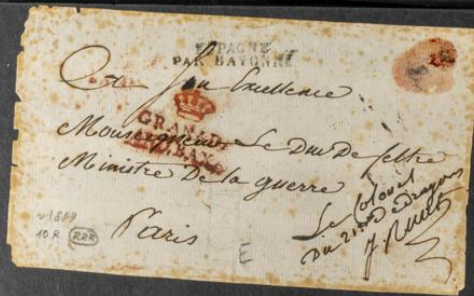 ESPAGNE
PAR BAYONNE
A Son Excellence
GRANADA
Monseigneur Le Duc De feltre
Ministre De la guerre
Paris
Le Colonel
Du 21me de dragons
v 1809
10 R RRR
E